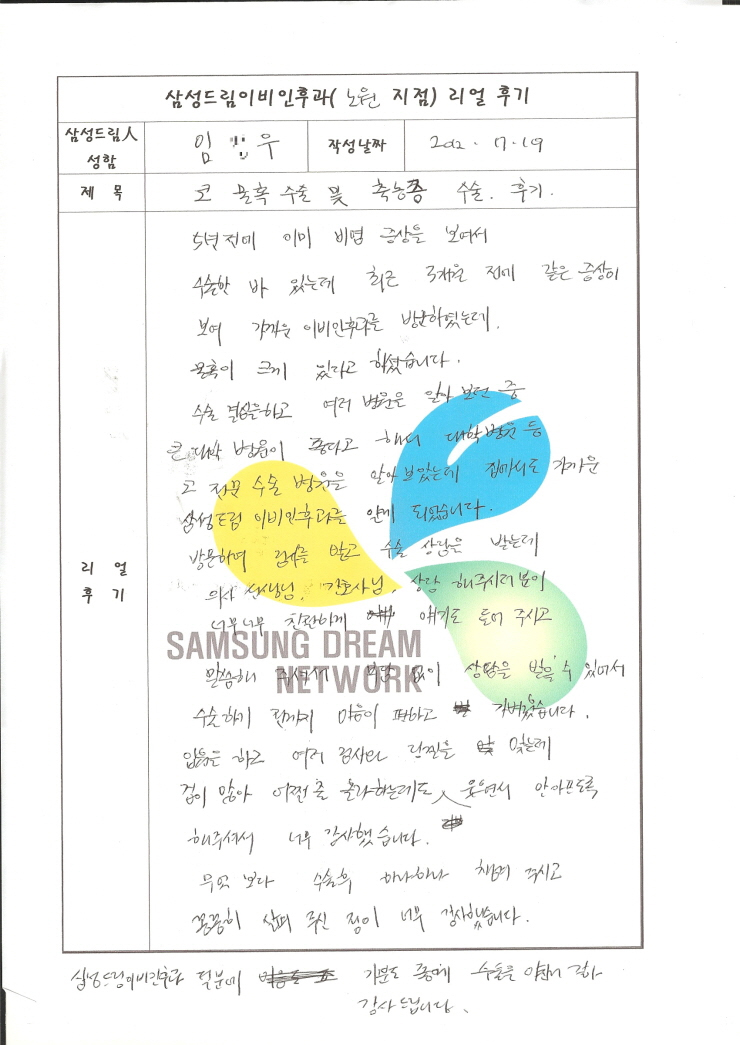 삼성드림이비인후과( 노원 지점) 리얼 후기
삼성드림人 성함
임 우
작성날짜
2012. 7.19
제 목
코 물혹 수술 및 축농증 수술. 후기.
리 얼 후 기
5년전에 이미 비염 증상을 보여서
수술한 바 있는데 최근 3개월 전에 같은 증상이
보여 가까운 이비인후과를 방문하였는데.
물혹이 크게 있다고 하셨습니다.
수술 결심을하고 여러 병원을 알아 보던 중
큰 대학 병원이 좋다고 해서 대학병원 등
코 전문 수술 병원을 알아보았는데 집에서도 가까운
삼성드림 이비인후과를 알게 되었습니다.
방문하여 검사를 받고 수술 상담을 받는데
의사 선생님, 간호사님, 상담 해주시는 분이
너무너무 친절하게 얘기도 들어 주시고
SAMSUNG DREAM
NETWORK
말씀해 주셔서 부담 없이 상담을 받을 수 있어서
수술하기 전까지 마음이 편하고 가벼웠습니다.
입원을 하고 여러 검사와 링겔을 맞는데
겁이 많아 어쩔줄 몰라하는데도 웃으면서 안아프도록
해주셔서 너무 감사했습니다.
무엇 보다 수술후 하나하나 챙겨 주시고
꼼꼼히 살펴 주신 점이 너무 감사했습니다.
삼성드림이비인후과 덕분에 기분도 좋게 수술을
감사드립니다.